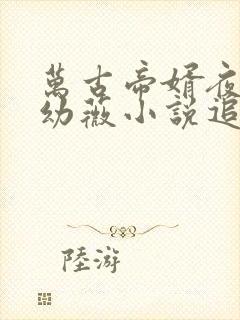 萬古帝婿夜
幼薇小說追
陸游